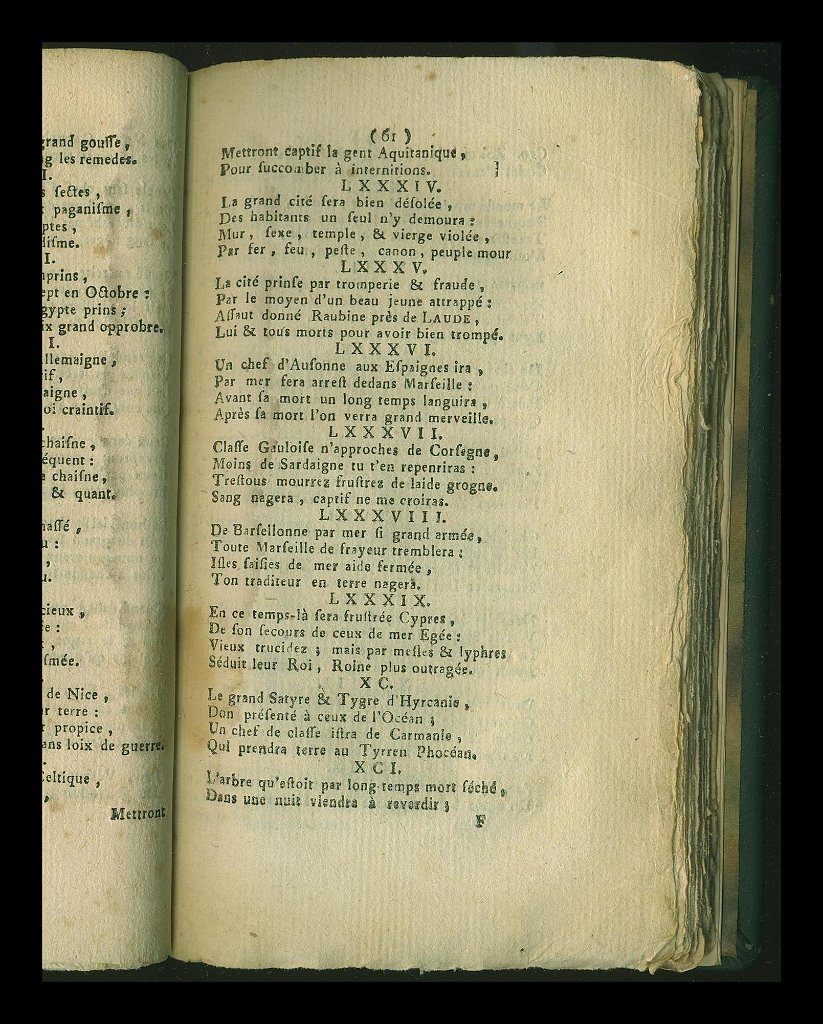 grand gouſſe,
g les remedes.
I.
s ſectes,
paganiſme,
ptes,
diſme.
I.
prins,
ept en Octobre :
gypte prins ;
ix grand opprobre.
I.
llemaigne,
if,
aigne,
oi craintif.
chaiſne,
équent :
a chaiſne,
& quant.
haſſé,
u :
,
u.
cieux,
e :
,
ſmée.
de Nice,
r terre :
r propice,
ans loix de guerre.
Celtique,
,
Mettront
(61)
Mettront captif la gent Aquitanique,
Pour ſuccomber à internitions.
LXXXIV.
La grand cité ſera bien déſolée,
Des habitants un ſeul n'y demoura :
Mur, ſexe, temple, & vierge violée,
Par fer, feu, peſte, canon, peuple mour
LXXXV.
La cité prinſe par tromperie & fraude,
Par le moyen d'un beau jeune attrappé :
Aſſaut donné Raubine près de LAUDE,
Lui & tous morts pour avoir bien trompé.
LXXXVI.
Un chef d'Auſonne aux Eſpaignes ira,
Par mer fera arreſt dedans Marſeille :
Avant ſa mort un long temps languira,
Après ſa mort l'on verra grand merveille.
LXXXVII.
Claſſe Gauloiſe n'approches de Corſegne,
Moins de Sardaigne tu t'en repenriras :
Treſtous mourrez fruſtrez de laide grogne.
Sang nagera, captif ne me croiras.
LXXXVIII.
De Barſellonne par mer ſi grand armée,
Toute Marſeille de frayeur tremblera :
Iſles ſaiſies de mer aide fermée,
Ton traditeur en terre nagera.
LXXXIX.
En ce temps-là ſera fruſtrée Cypres,
De ſon ſecours de ceux de mer Egée :
Vieux trucidez ; mais par meſles & lyphres
Séduit leur Roi, Roine plus outragée.
XC.
Le grand Satyre & Tygre d'Hyrcanie,
Don préſenté à ceux de l'Océan ;
Un chef de claſſe iſtra de Carmanie,
Qui prendra terre au Tyrren Phocéan.
XCI.
L'arbre qu'eſtoit par long-temps mort ſéché,
Dans une nuit viendra à reverdir ;
F